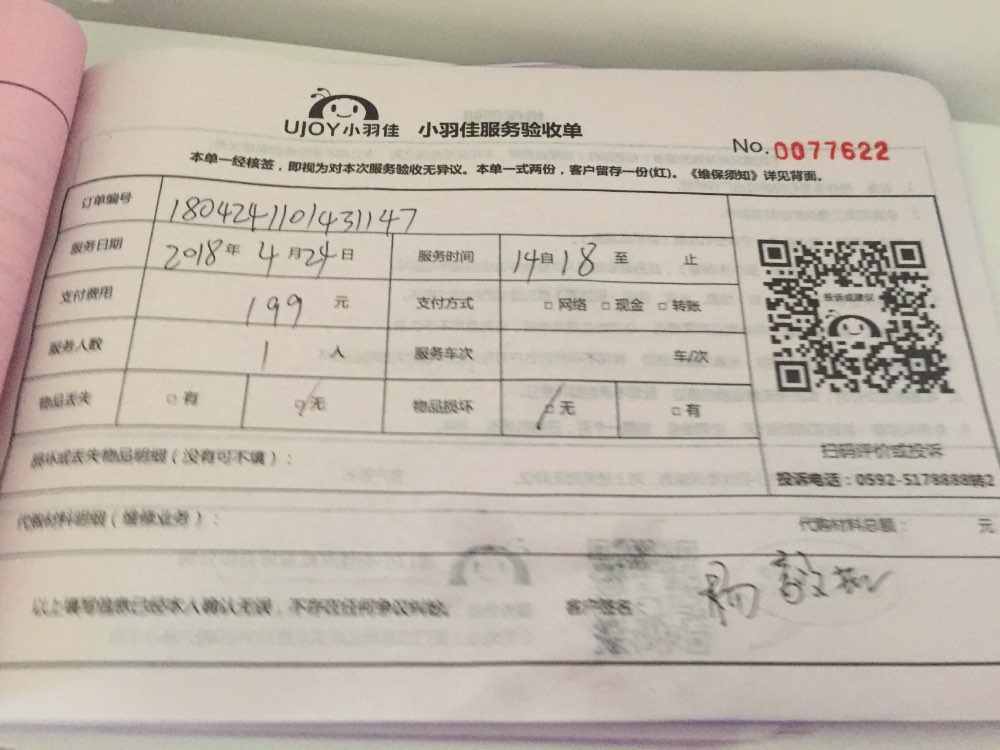 UJOY小羽佳 小羽佳服务验收单
No. 0077622
本单一经核签，即视为对本次服务验收无异议。本单一式两份，客户留存一份(红)。《维保须知》详见背面。
订单编号 1804241101431147
服务日期 2018年 4月24日 服务时间 14自18至 止
投诉或建议
支付费用 199 元 支付方式 □ 网络 □ 现金 □ 转账
服务人数 1 人 服务车次 车/次
物品丢失 □ 有 □ 无 物品损坏 □ 无 □ 有
损坏或丢失物品明细（没有可不填）：
扫码评价或投诉
投诉电话：0592-5178888转2
代购材料明细（维修业务）： 代购材料总额： 元
以上填写信息已经本人确认无误，不存在任何争议纠纷。 客户签名： 杨